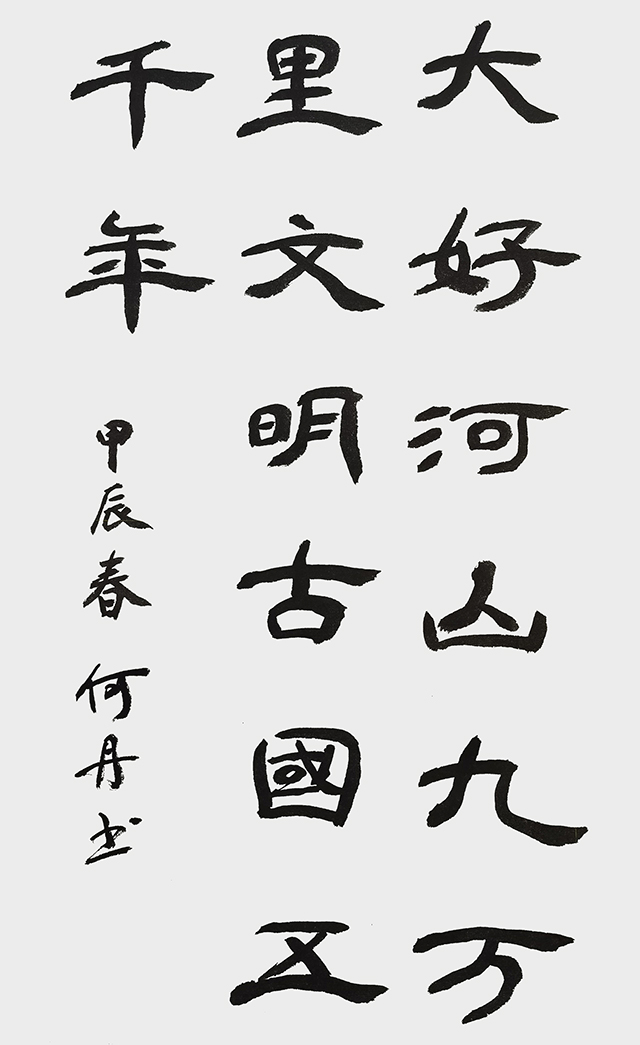 大好河山九万
里文明古國五
千年
甲辰春何丹书